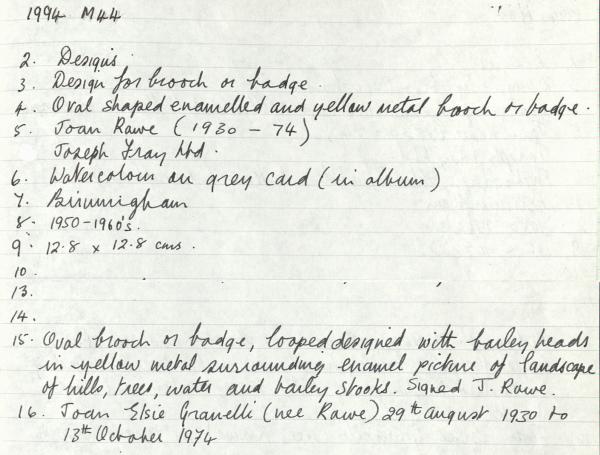 1994 M44
2. Designs
3. Design for brooch or badge.
4. Oval shaped enamelled and yellow metal brooch or badge.
5. Joan Rawe (1930 - 74)
Joseph Fray Ltd.
6. Watercolour on grey card (in album)
7. Birmingham
8. 1950-1960's.
9. 12.8 x 12.8 cms.
10.
13.
14.
15. Oval brooch or badge, looped designed with barley heads
in yellow metal surrounding enamel picture of landscape
of hills, trees, water and barley stooks. Signed J. Rawe.
16. Joan Elsie Granelli (nee Rawe) 29th August 1930 to
13th October 1974